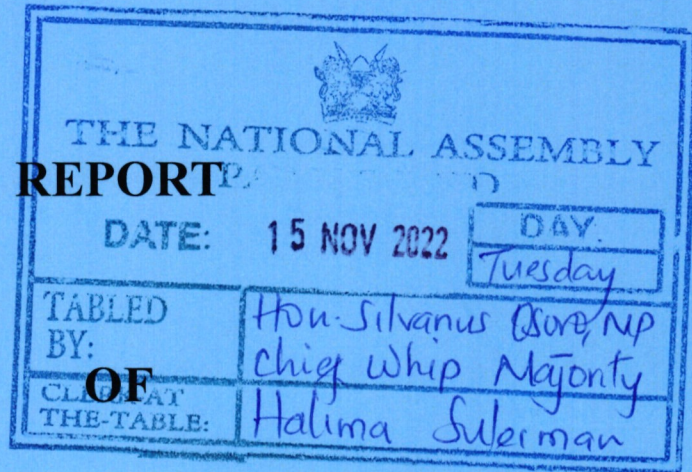 THE NATIONAL ASSEMBLY
REPORT
DATE: 15 NOV 2022 DAY.
Tuesday
TABLED BY: Hon. Silvanus Osoro, MP
Chief Whip Majority
OF
CLERK AT THE-TABLE: Halima Suleiman